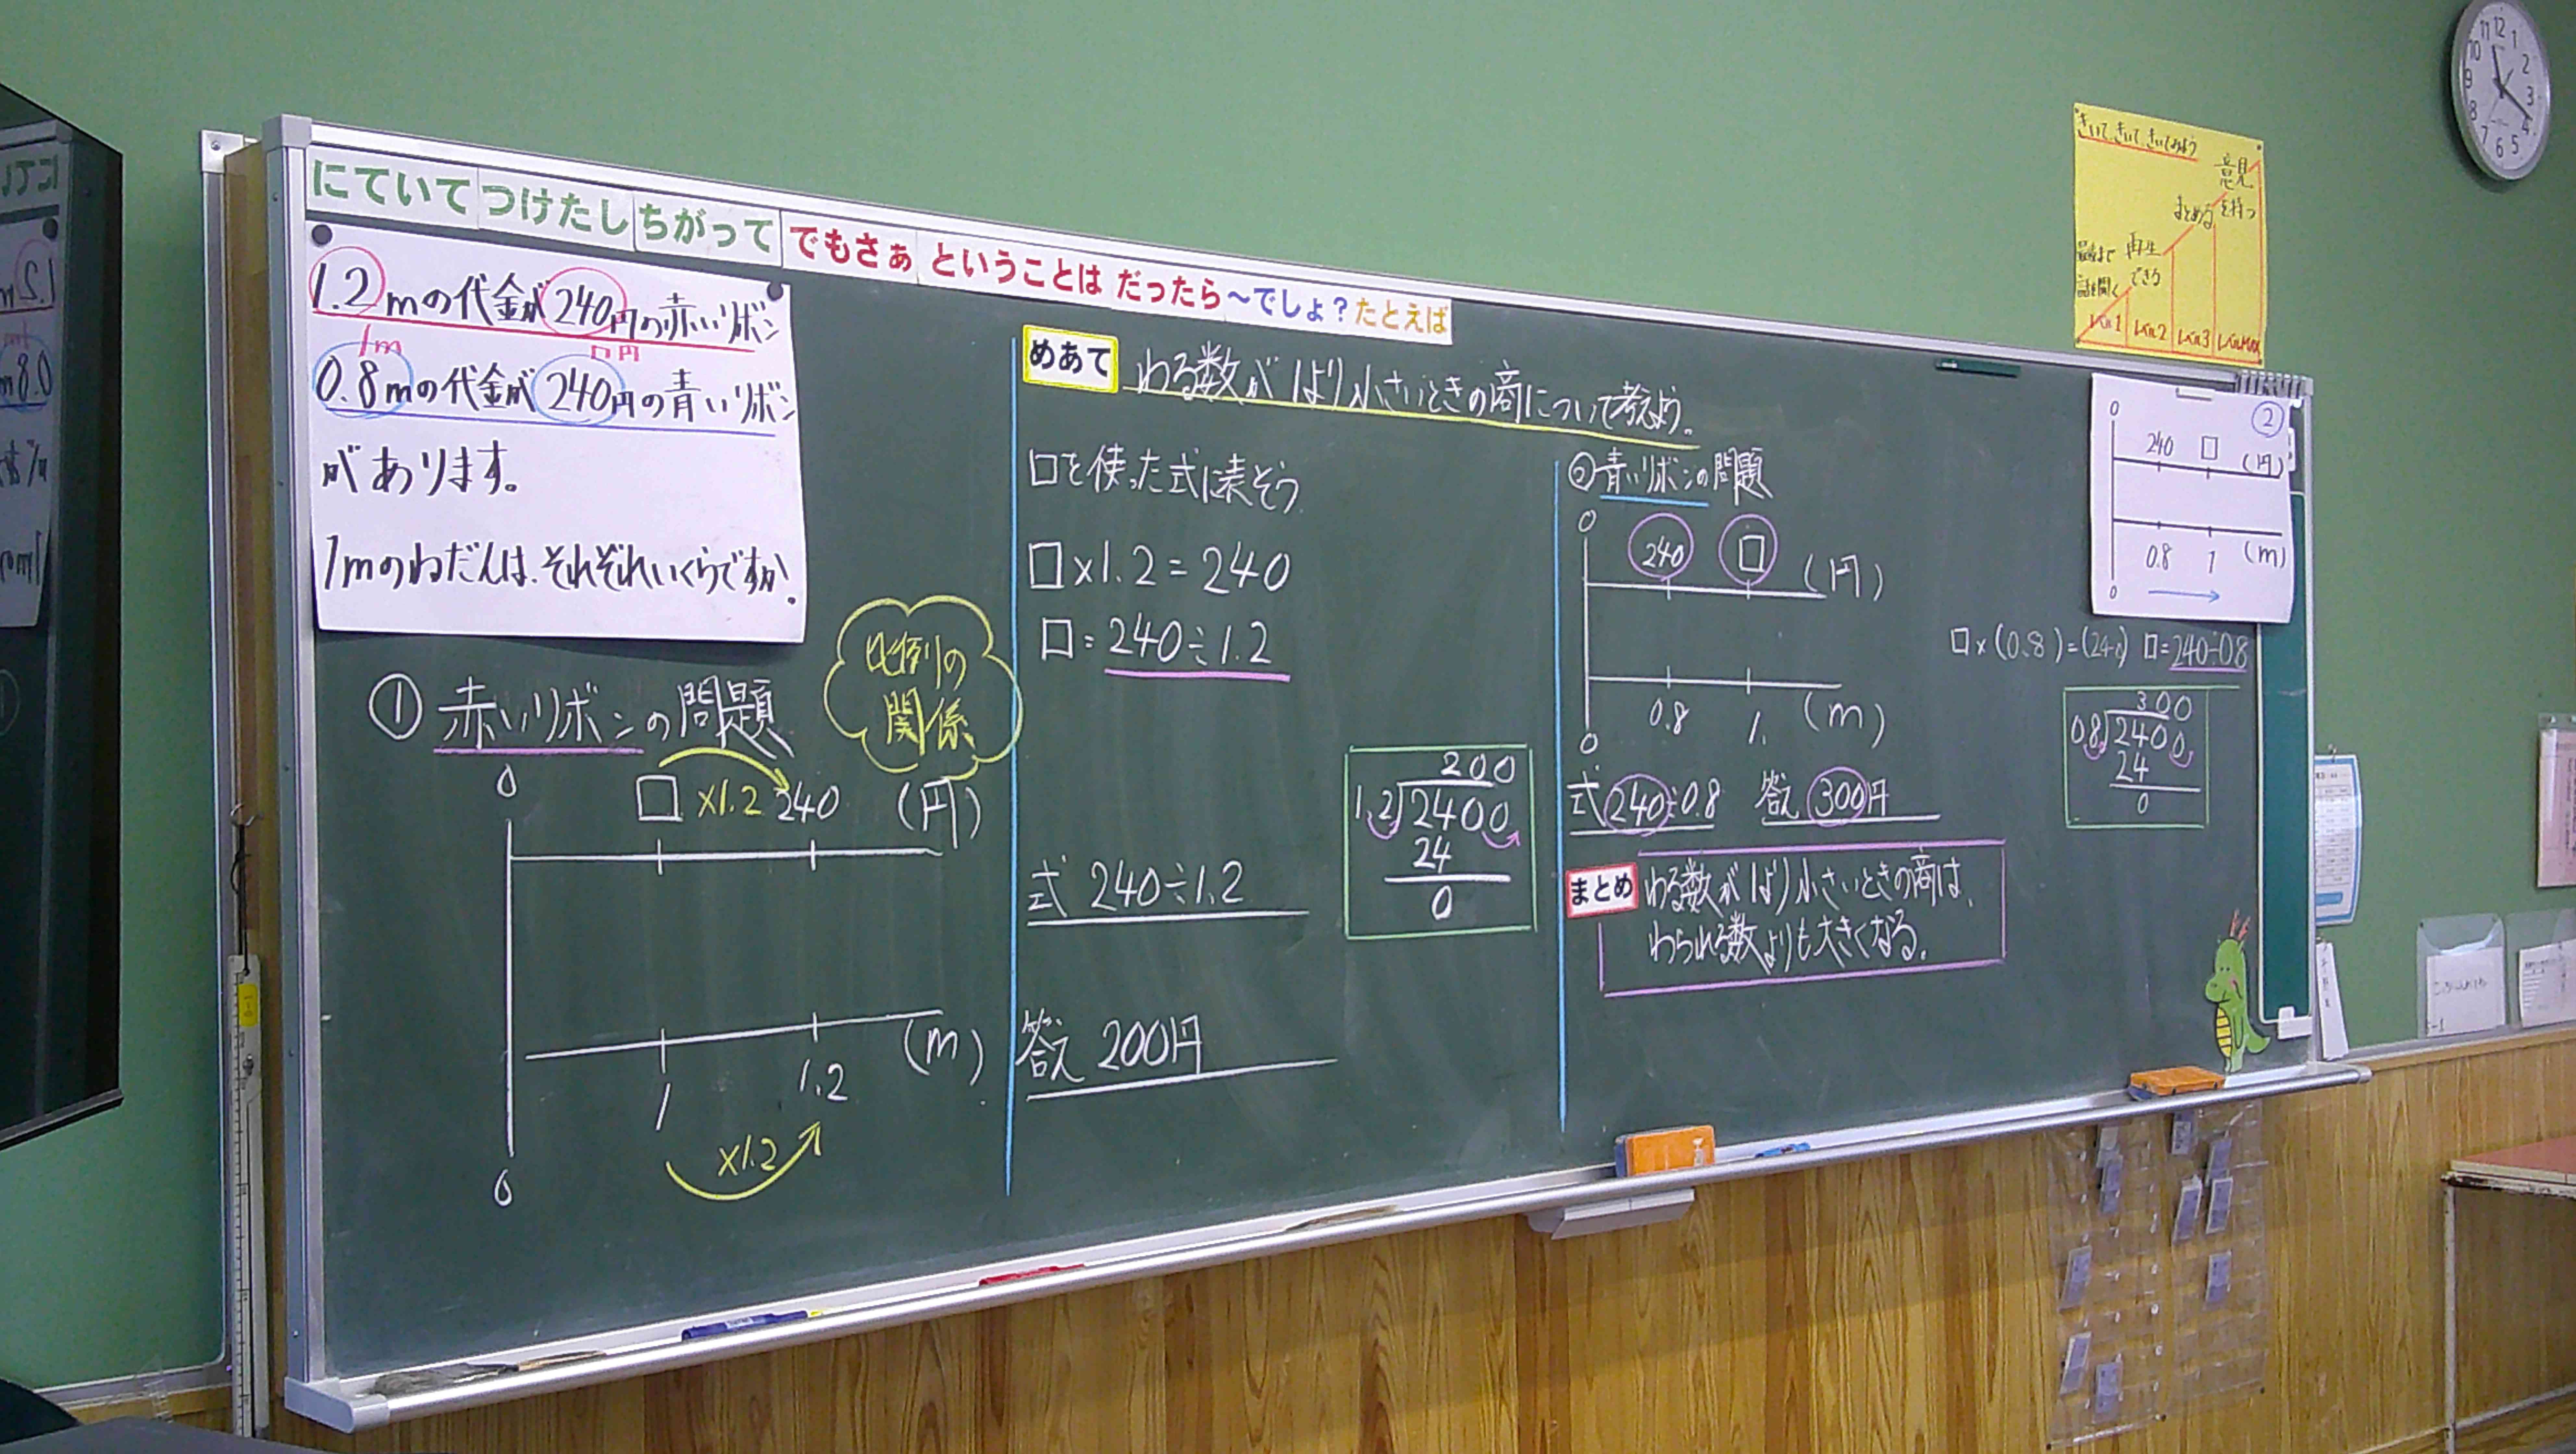 にていて つけたし ちがって でもさぁ ということは だったら～でしょ？ たとえば
1.2mの代金が240円の赤いリボン
1m □円
0.8mの代金が240円の青いリボン
があります。
1mのねだんは、それぞれいくらですか。
① 赤いリボンの問題
比例の
関係
0 □ ×1.2 240 (円)
0 1 1.2 (m)
×1.2
めあて わる数が1より小さいときの商について考えよう。
□を使った式に表そう
□×1.2=240
□=240÷1.2
式 240÷1.2
答え 200円
200
1.2 2400
24
0
②青いリボンの問題
0 240 □ (円)
0 0.8 1. (m)
式 240÷0.8 答え 300円
まとめ わる数が1より小さいときの商は、
わられる数よりも大きくなる。
②
0 240 □ (円)
0 0.8 1 (m)
□×(0.8)=(240) □=240÷0.8
300
0.8 2400
24
0
きいて、きいて、きいてみよう
意見
を持つ
まとめる
再生
できる
最後まで
話を聞く
レベル1 レベル2 レベル3 レベルMAX
11 12 1
10 2
9 3
8 4
7 6 5